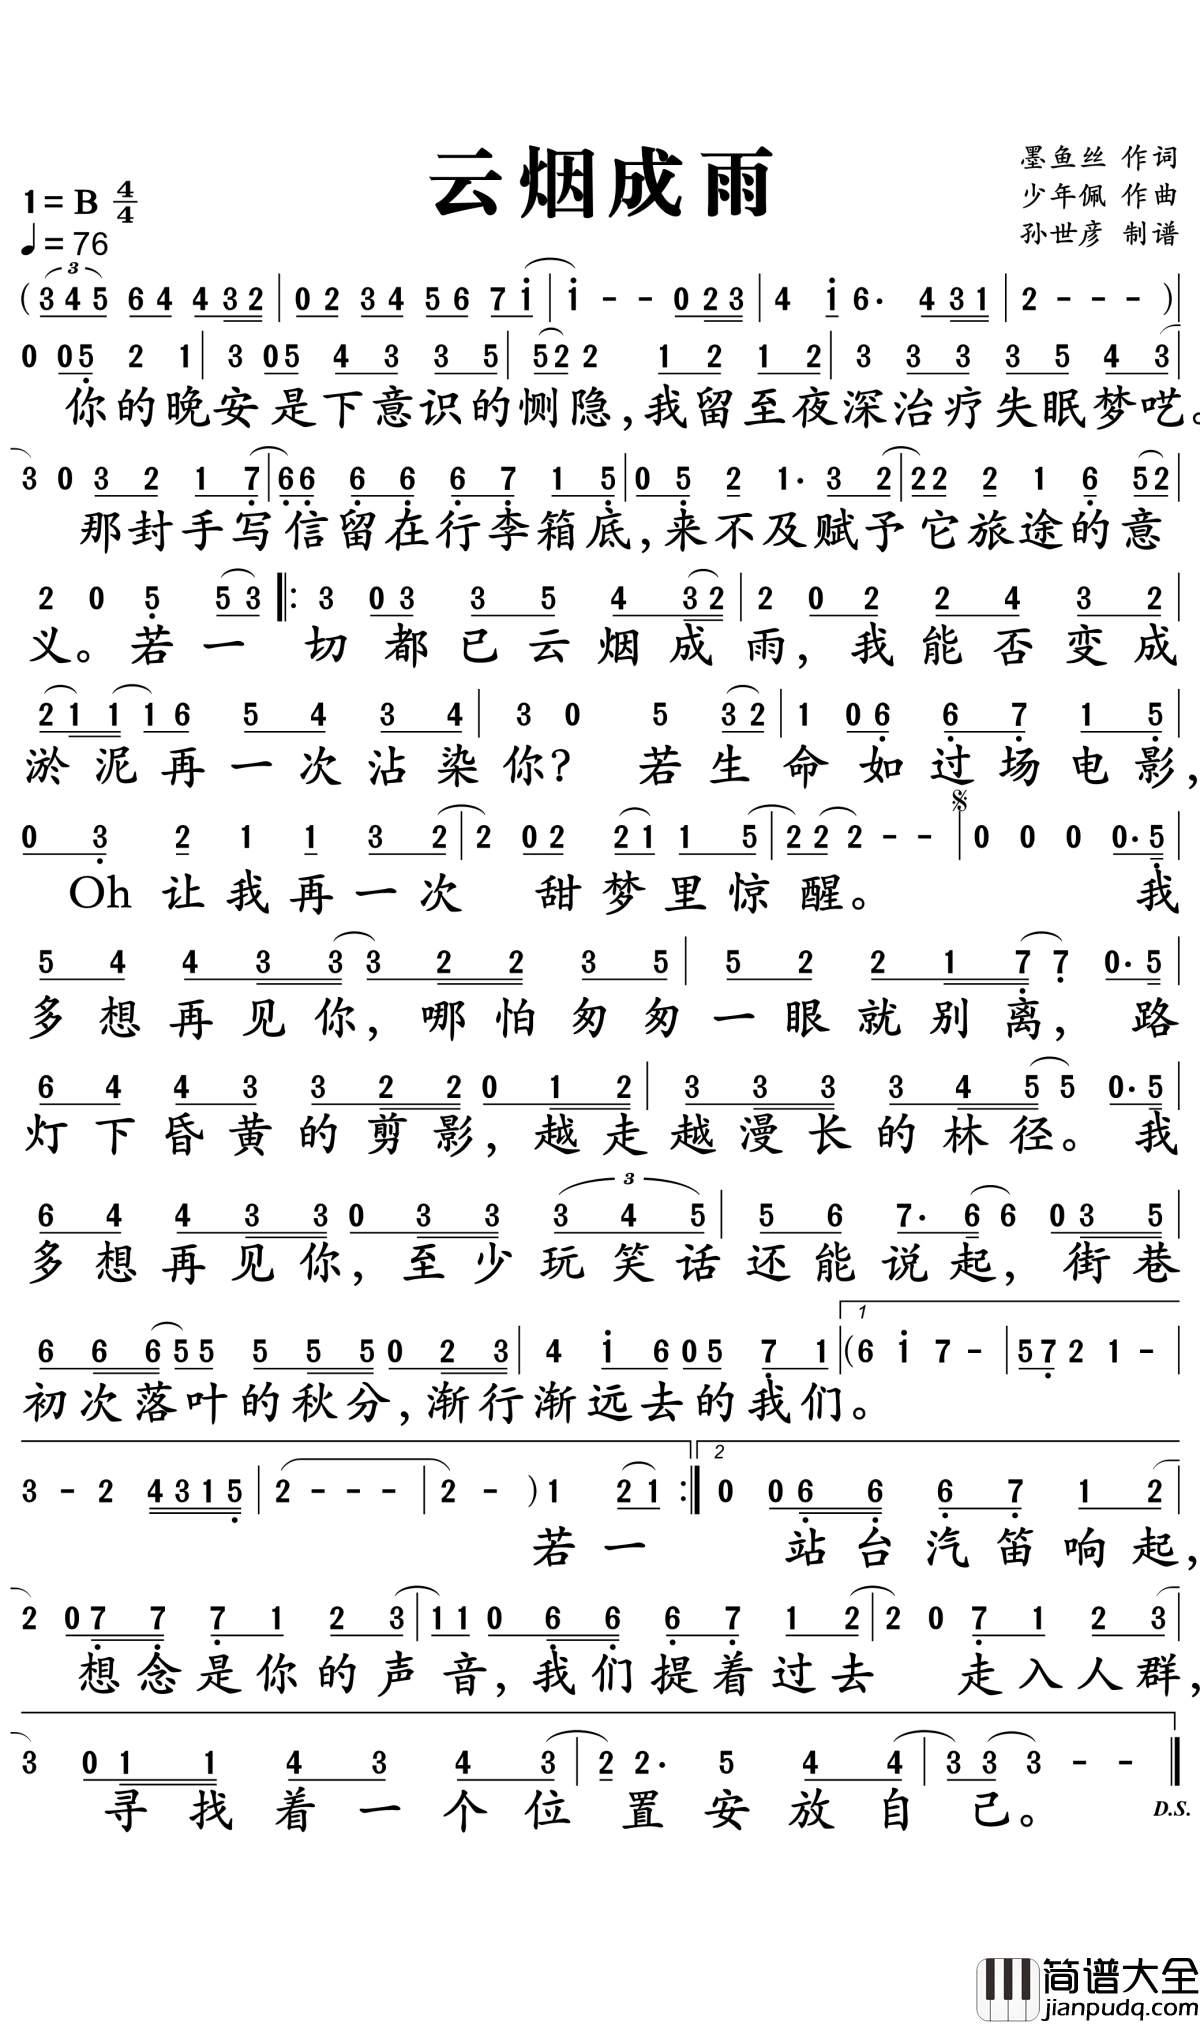 云烟成雨
墨鱼丝 作词
少年佩 作曲
孙世彦 制谱
1= B 4/4
♩= 76
( 3 4 5 6 4 4 3 2 | 0 2 3 4 5 6 7 i | i - - 0 2 3 | 4 i 6· 4 3 1 | 2 - - - ) |
0 0 5 2 1 | 3 0 5 4 3 3 5 | 5 2 2 1 2 1 2 | 3 3 3 3 5 4 3 |
你的晚安是下意识的恻隐,我留至夜深治疗失眠梦呓。
3 0 3 2 1 7 | 6 6 6 6 6 7 1 5 | 0 5 2 1· 3 2 | 2 2 2 1 6 5 2
那封手写信留在行李箱底,来不及赋予它旅途的意
2 0 5 5 3 |: 3 0 3 3 5 4 3 2 | 2 0 2 2 4 3 2 |
义。若一切都已云烟成雨,我能否变成
2 1 1 1 6 5 4 3 4 | 3 0 5 3 2 | 1 0 6 6 7 1 5 |
淤泥再一次沾染你?若生命如过场电影,
0 3 2 1 1 3 2 | 2 0 2 2 1 1 5 | 2 2 2 - - | 0 0 0 0· 5 |
Oh 让我再一次 甜梦里惊醒。 我
5 4 4 3 3 3 2 2 3 5 | 5 2 2 1 7 7 0· 5 |
多想再见你,哪怕匆匆一眼就别离,路
6 4 4 3 3 2 2 0 1 2 | 3 3 3 3 4 5 5 0· 5 |
灯下昏黄的剪影,越走越漫长的林径。我
6 4 4 3 3 0 3 3 3 4 5 | 5 6 7· 6 6 0 3 5 |
多想再见你,至少玩笑话还能说起,街巷
6 6 6 5 5 5 5 5 0 2 3 | 4 i 6 0 5 7 1 | 1 ( 6 i 7 - | 5 7 2 1 - |
初次落叶的秋分,渐行渐远去的我们。
3 - 2 4 3 1 5 | 2 - - - | 2 - ) 1 2 1 :| 2 0 0 6 6 6 7 1 2 |
若一 站台汽笛响起,
2 0 7 7 7 1 2 3 | 1 1 0 6 6 6 7 1 2 | 2 0 7 1 2 3 |
想念是你的声音,我们提着过去 走入人群,
3 0 1 1 4 3 4 3 | 2 2· 5 4 4 | 3 3 3 - - ‖
寻找着一个位置安放自己。
D.S.
简谱大全
jianpudq.com